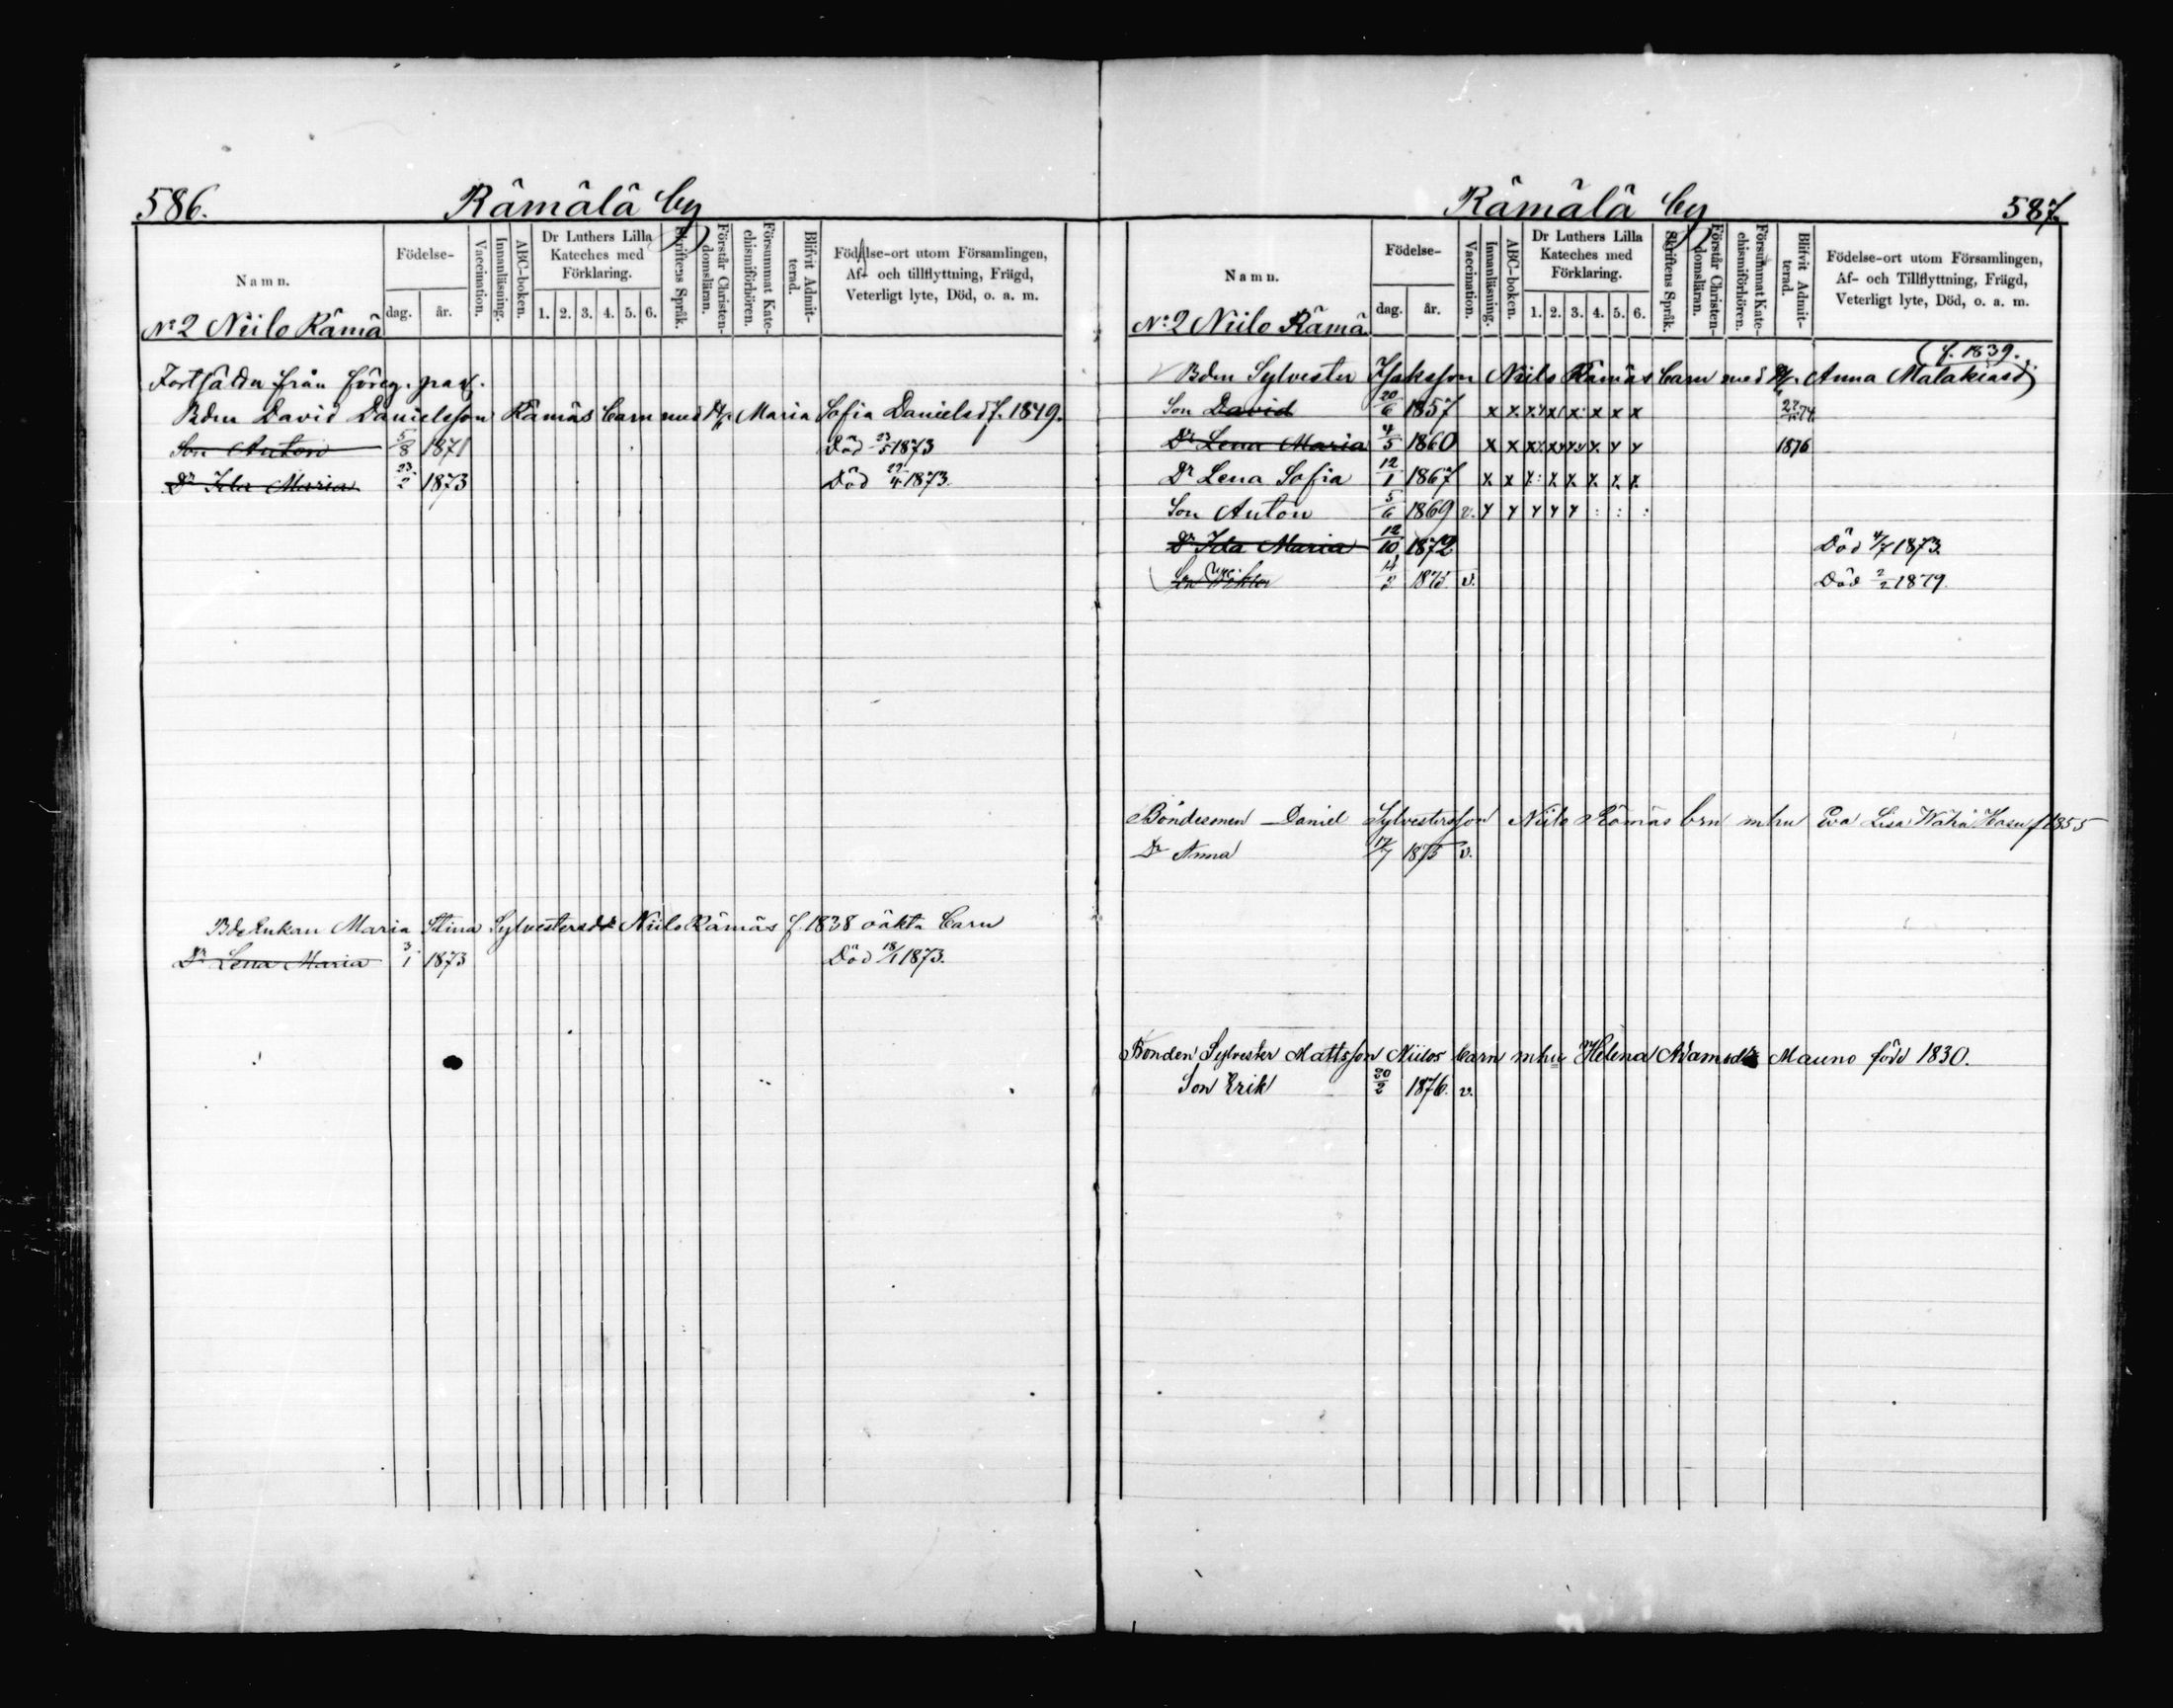 586.
Rämälä by
Namn.
Födelse-
dag.
år.
Vaccination.
Innanläsning.
ABC-boken.
Dr Luthers Lilla
Kateches med
Förklaring.
1. 2. 3. 4. 5. 6.
Skriftens Språk.
Förstår Christen-
domsläran.
Försummat Kate-
chismiförhören.
Blifvit Admit-
terad.
Födelse-ort utom Församlingen,
Af- och tillflyttning, Frägd,
Veterligt lyte, Död, o. a. m.
No 2 Niilo Rämä
Fortsättn från föreg. pag.
Bdm David Danielsson Rämäs barn med H/r Maria Sofia Danielsd f. 1849.
Son Anton 5/8 1871 Död 1873
Dr Ida Maria 23/2 1873 Död 1873.
BdeEnkan Maria Stina Sylvestersdr Niilo Rämäs f. 1838 oäkta barn
Dr Lena Maria 3/1 1873 Död 18/1 1873.
Rämälä by
587.
Namn.
Födelse-
dag.
år.
Vaccination.
Innanläsning.
ABC-boken.
Dr Luthers Lilla
Kateches med
Förklaring.
1. 2. 3. 4. 5. 6.
Skriftens Språk.
Förstår Christen-
domsläran.
Försummat Kate-
chismiförhören.
Blifvit Admit-
terad.
Födelse-ort utom Församlingen,
Af- och Tillflyttning, Frägd,
Veterligt lyte, Död, o. a. m.
No 2 Niilo Rämä
(f. 1839.
Bdm Sylvester Isaksson Niilo Rämäs barn med H/r Anna Malakiasd)
Son David 20/6 1857 x x x x x x x x
Dr Lena Maria 4/5 1860 x x x x x x y y 1876
Dr Lena Sofia 12/1 1867 x x x x x x x x
Son Anton 5/6 1869 v. y y y y y : : :
Dr Ida Maria 12/10 1872 Död 4/7 1873.
Son Wiktor 1875 v. Död 2/2 1879.
Bondesonen Daniel Sylvestersson Niilo Rämäs brn mhu Eva Lisa f 1855
Dr Anna 17/7 1875 v.
Bonden Sylvester Mattsson Niilos barn mhu Helena Adamsdr Mauno född 1830.
Son Erik 20/2 1876. v.